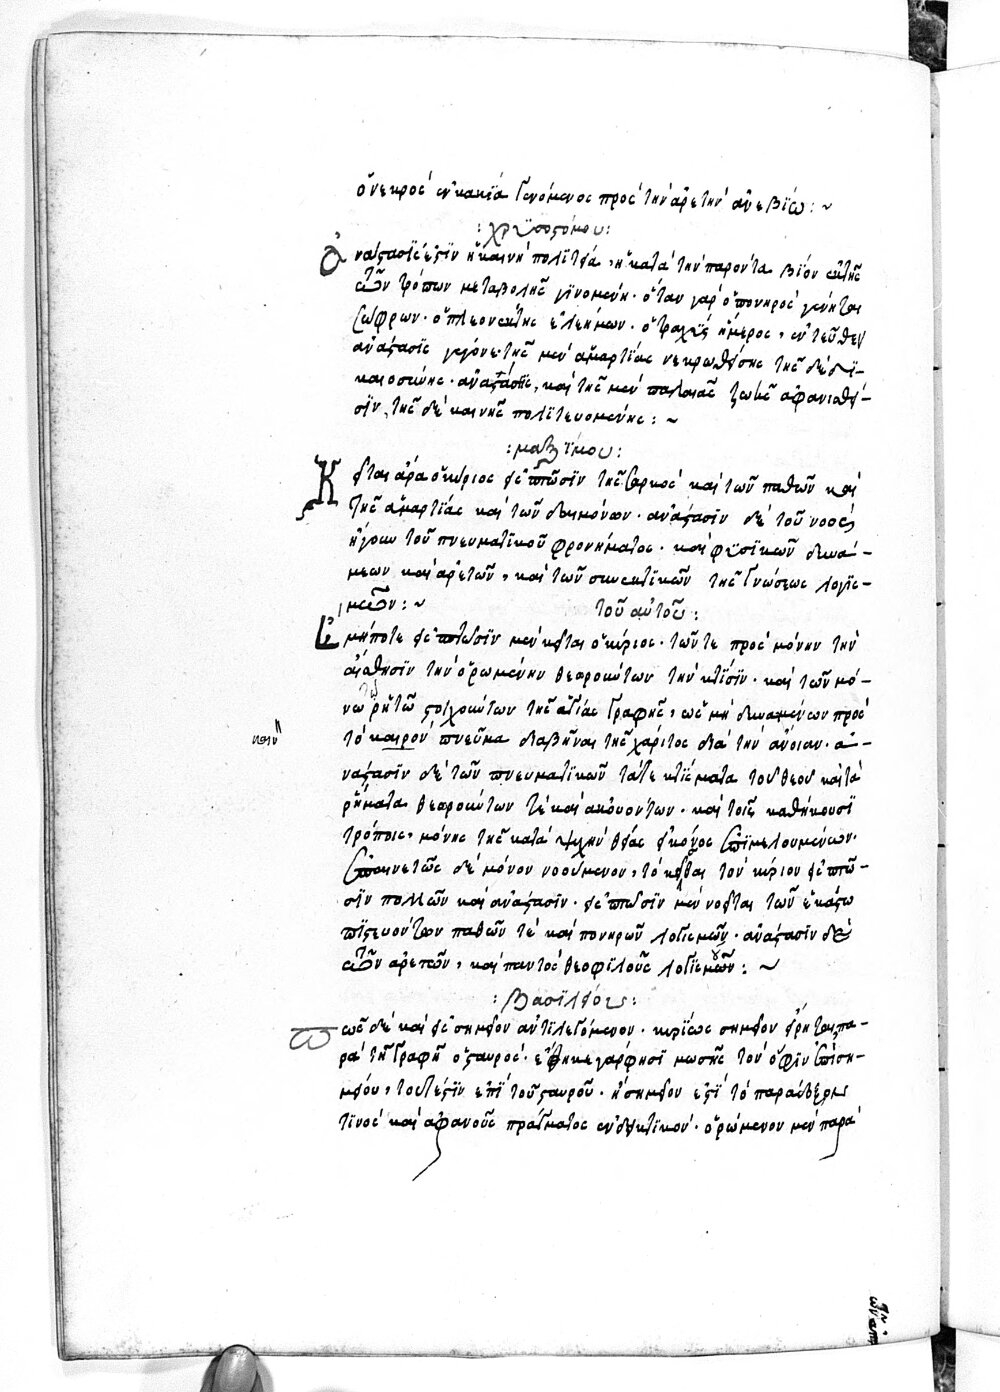 ὁ νεκρὸς ἐν κακία γενόμενος πρὸς τὴν ἀρετὴν ἀνεβίω : ~
: χρυσοστόμου :
Ἀνάστασίς ἐστιν ἡ καινὴ πολιτεία, ἡ κατὰ τὴν παρόντα βίον ἐκ τῆς
τῶν τρόπων μεταβολῆς γινομένη · ὅταν γὰρ ὁ πόρνος γένηται
σώφρων · ὁ πλεονέκτης ἐλεήμων · ὁ τραχὺς ἥμερος, ἐντεῦθεν
ἀνάστασις γέγονε · τῆς μὲν ἁμαρτίας νεκρωθείσης τῆς δὲ δι-
καιοσύνης · ἀναστάσης, καὶ τῆς μὲν παλαιᾶς ζωῆς ἀφανισθεί-
σιν, τῆς δὲ καινῆς πολιτευομένης : ~
: μαξίμου :
Κεῖται ἄρα ὁ κύριος εἰς πτῶσιν τῆς σαρκὸς καὶ τῶν παθῶν καὶ
τῆς ἁμαρτίας καὶ τῶν δαιμόνων · ἀνάστασιν δὲ τοῦ νοὸς
ἤγουν τοῦ πνευματικοῦ φρονήματος · καὶ φυσικῶν δυνά-
μεων καὶ ἀρετῶν, καὶ τῶν συνεκτικῶν τῆς γνώσεως λογισ-
μῶν : ~ τοῦ αὐτοῦ :
Ἢ μήποτε εἰς πτῶσιν μὲν κεῖται ὁ κύριος · τῶν τε πρὸς μόνην τὴν
αἴσθησιν τὴν ὁρωμένην θεωρούντων τὴν κτίσιν · καὶ τῶν μό-
νῳ τῷ ῥητῷ στοιχούντων τῆς ἁγίας γραφῆς, ὡς μὴ δυναμένων πρὸς
τὸ καιρὸν πνεῦμα διαβῆναι τῆς χάριτος διὰ τὴν ἄνοιαν · ἀ-
καινὸν
νάστασιν δὲ τῶν πνευματικῶν τά τε κτίσματα τοῦ θεοῦ καὶ τὰ
ῥήματα θεωρούντων τὲ καὶ ἀκουόντων · καὶ τοῖς καθήκουσι
τρόποις, μόνης τῆς κατὰ ψυχὴν θείας εἰκόνος ἐπιμελουμένων ·
ἐπαινετῶς δὲ μόνον νοούμενον, τὸ κεῖσθαι τὸν κύριον εἰς πτῶ-
σιν πολλῶν καὶ ἀνάστασιν · εἰς πτῶσιν μὲν νοεῖται τῶν ἑκάστῳ
πιστευόντων παθῶν τὲ καὶ πονηρῶν λογισμῶν · ἀνάστασιν δὲ
τῶν ἀρετῶν, καὶ παντὸς θεοφιλοῦς λογισμοῦ : ~
: βασιλείου :
πῶς δὲ καὶ εἰς σημεῖον ἀντιλεγόμενον · κυρίως σημεῖον εἴρηται πα-
ρὰ τῇ γραφῇ ὁ σταυρός · ἔθηκε γάρ φησι μωσῆς τὸν ὄφιν ἐπὶ ση-
μείου, τουτέστιν ἐπὶ τοῦ σταυροῦ · ἢ σημεῖον ἐστὶ τὸ παραδόξου
τινὸς καὶ ἀφανοῦς πράγματος ἐνδεικτικόν · ὁρώμενον μὲν παρὰ